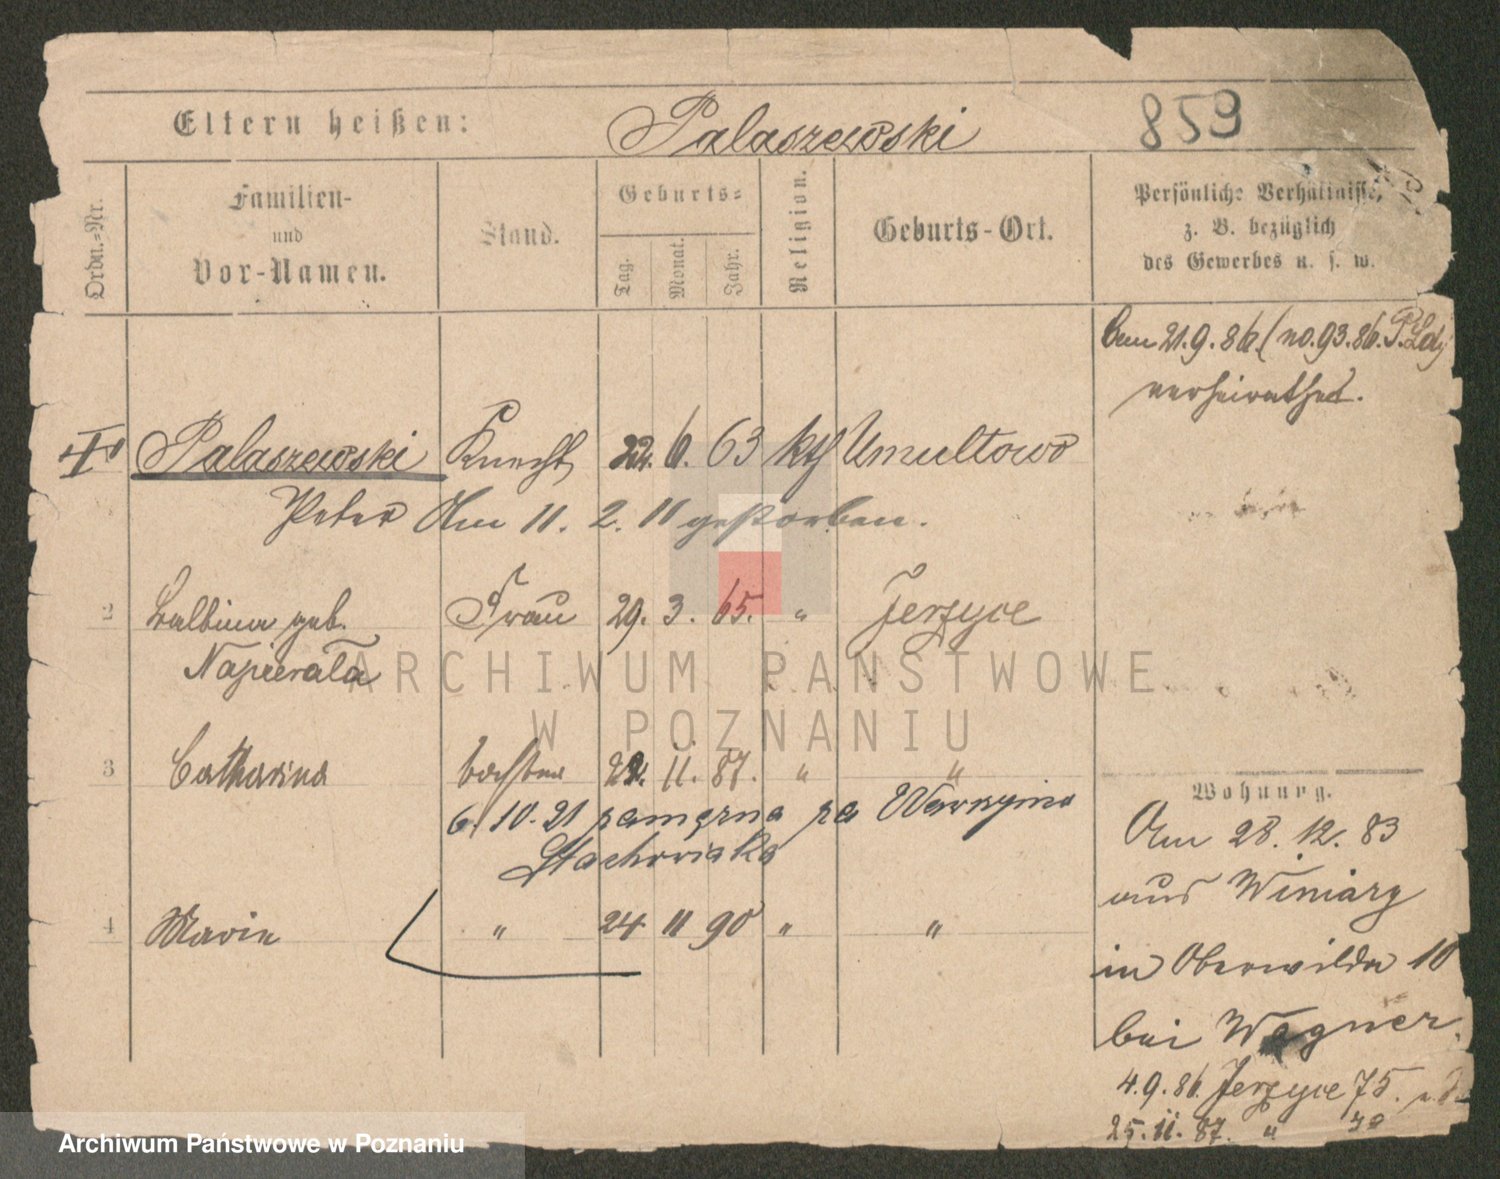 Eltern heißen: Palaszewski 859
Ordn.-Nr.
Familien-
und
Vor-Namen.
Stand.
Geburts-
Tag.
Monat.
Jahr.
Religion.
Geburts-Ort.
Persönliche Verhältnisse,
z. B. bezüglich
des Gewerbes u. s. w.
Am 21.9.86 (no. 93.86.
verheirathet.
Palaszewski Knecht 6. 63 kth Umultowo
Peter Am 11. 2. 11 gestorben.
2 Balbina geb. Frau 29. 3. 65. " Jerzyce
Napierała
3 Catharina Tochter 11. 87. " "
6/10.21 zamężna za Wawrzyna
Stachowiaka
4 Marie " 24 11 90 " "
Wohnung.
Am 28. 12. 83
aus Winiary
in Oberwilda 10
bei Wegner.
4.9.86. Jerzyce 75.
25.11.87. "
ARCHIWUM PAŃSTWOWE
W POZNANIU
Archiwum Państwowe w Poznaniu